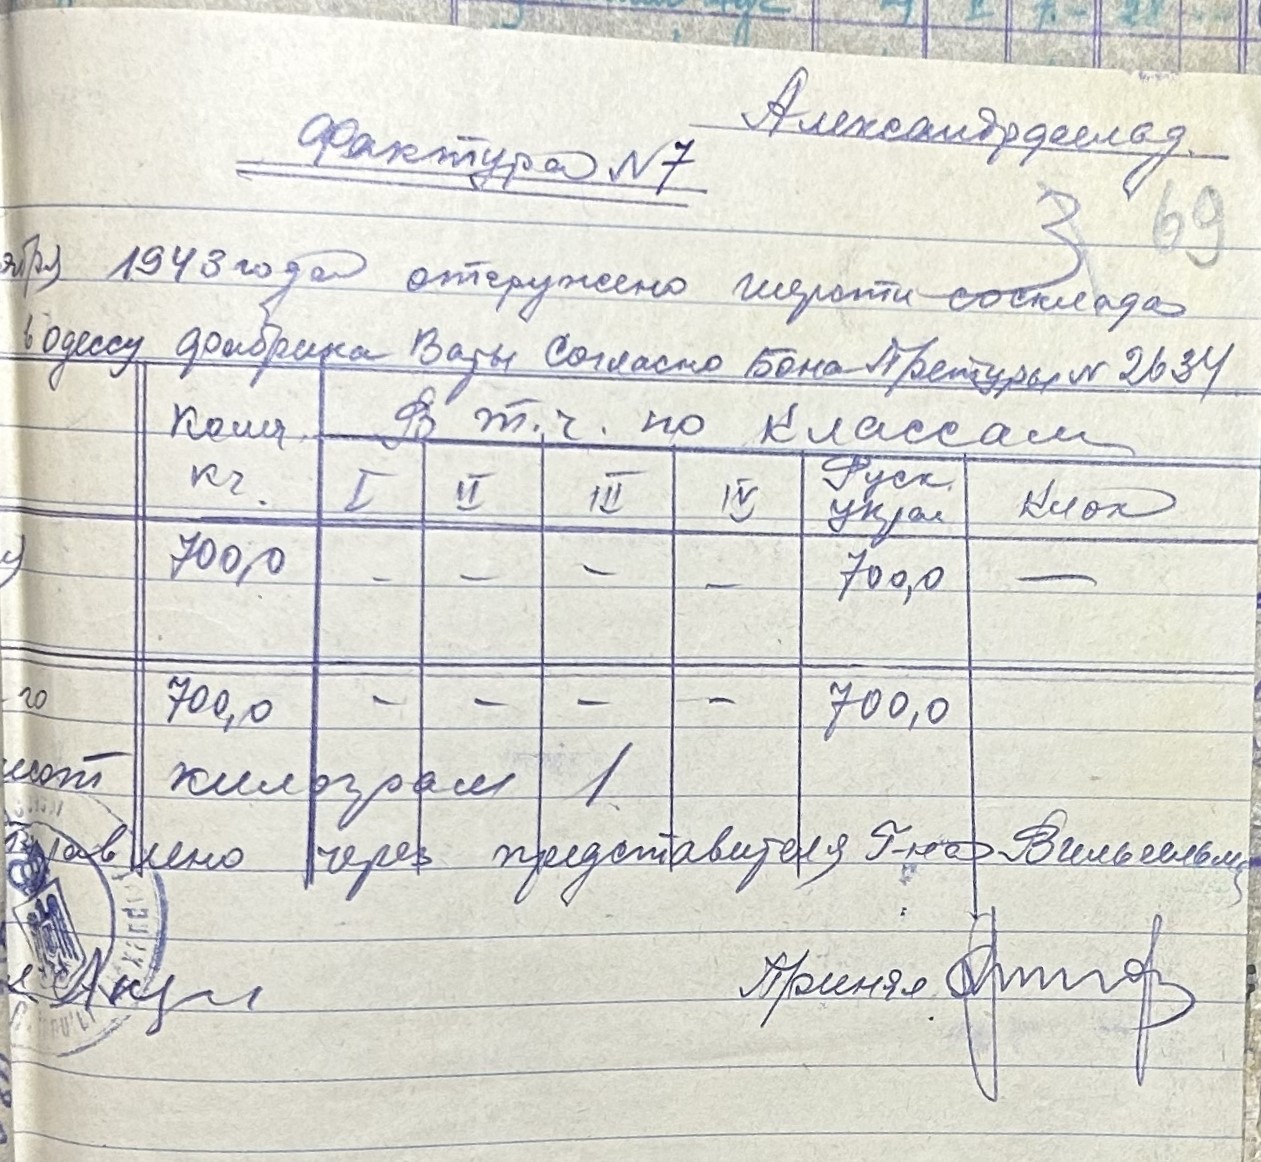 Александрфельд.
Фактура N7
69
3
ября 1943 года отгружено шерсти со склада
в Одессу фабрика Ваты Согласно Бона Претуры N 2634
Колич. В т.ч. по классам
кг. I II III IV Руск. укра Клок
700,0 - - - - 700,0 —
-го 700,0 - - - - 700,0
килограм
правлено через представителя Г-на Вильгельм
Принял